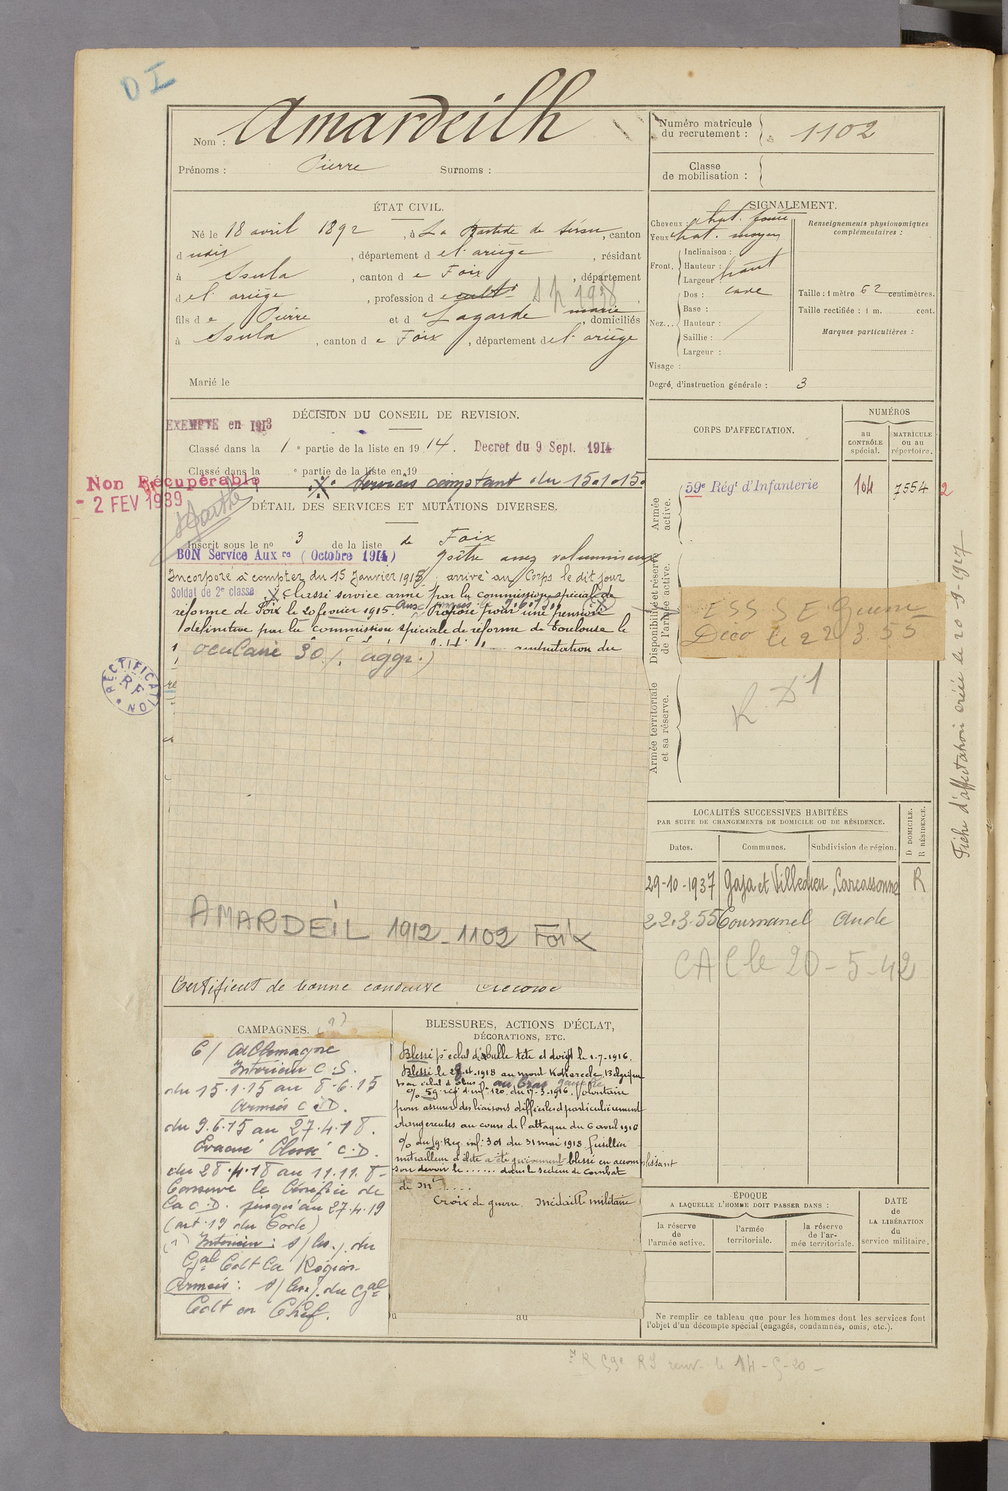 DI
Nom : Amardeilh
Prénoms : Pierre Surnoms :
Numéro matricule du recrutement : 1102
Classe de mobilisation :
ÉTAT CIVIL.
Né le 18 avril 1892, à La Bastide de Sérou, canton
d udit, département de l'ariège, résidant
à Ssula, canton de Foix, département
de l'ariège, profession de cult
fils de Pierre et de Lagarde marie, domiciliés
à Ssula, canton de Foix, département de l'ariège
Marié le
SIGNALEMENT.
Cheveux chat. foncé
Yeux chat. moyen
Front. Inclinaison :
Hauteur : haut
Largeur :
Nez... Dos : cave
Base :
Hauteur :
Saillie :
Largeur :
Visage :
Renseignements physionomiques complémentaires :
Taille : 1 mètre 62 centimètres.
Taille rectifiée : 1 m. cent.
Marques particulières :
Degré d'instruction générale : 3
DÉCISION DU CONSEIL DE REVISION.
EXEMPTÉ en 1913
Classé dans la 1e partie de la liste en 1914. Decret du 9 Sept. 1914
Classé dans la e partie de la liste en 19
Services comptant du 15.1.15.
Non Récupérable
- 2 FEV 1939
DÉTAIL DES SERVICES ET MUTATIONS DIVERSES.
Inscrit sous le no 3 de la liste de Foix
BON Service Auxre (Octobre 1914) goître assez volumineux
Incorporé à compter du 15 Janvier 1915, arrivé au Corps le dit jour
Soldat de 2e classe X Classé service armé par la commission spéciale de
réforme de Foix le 20 février 1915. Proposé pour une pension
définitive par la commission spéciale de réforme de Toulouse le
mutation du
oculaire 30 % aggr.)
RECTIFICATION RF
AMARDEIL 1912-1102 Foix
Certificat de bonne conduite accordé
CORPS D'AFFECTATION.
NUMÉROS
au CONTRÔLE spécial.
MATRICULE ou au répertoire.
Armée active.
59e Régt d'Infanterie 104 7554 2
Disponibilité et réserve de l'armée active.
ESS SE Guerre
Déco le 22.3.55
Armée territoriale et sa réserve.
R D1
Fiche d'affectation créée le 20-9-1927
LOCALITÉS SUCCESSIVES HABITÉES
PAR SUITE DE CHANGEMENTS DE DOMICILE OU DE RÉSIDENCE.
Dates. Communes. Subdivision de région. D DOMICILE. R RÉSIDENCE.
29-10-1937 Gaja et Villedieu, Carcassonne R
22.3.55 Cournanel Aude
CAC le 20-5-42
CAMPAGNES. (1)
C/ Allemagne
Intérieur C.S.
du 15.1.15 au 8.6.15
Armées C.D.
du 9.6.15 au 27.4.18.
Evacué Blessé C.D.
du 28.4.18 au 11.11.18-
Conserve le bénéfice de
la C.D. jusqu'au 27.4.19
(art. 19 du Code)
(1) Intérieur : s/les. du
Gal Cdt la Région
Armées : s/les. du Gal
Cdt en Chef.
BLESSURES, ACTIONS D'ÉCLAT,
DÉCORATIONS, ETC.
Blessé pr éclat d'obus tête et doigt le 1.7.1916.
Blessé le 28.4.1918 au mont Kokereele, Belgique
au bras gauche
% 59 régt d'inf. 120 du 17.3.1916. Volontaire
pour assurer des liaisons difficiles et particulièrement
dangereuses au cours de l'attaque du 6 avril 1916
% du 59 Reg. inf. 301 du 31 mai 1918 fusillier
mitrailleur d'élite a été grièvement blessé en accomplissant
son devoir le ....... dans le secteur de Combat
de Mt ....
Croix de guerre Médaille militaire
au
ÉPOQUE
A LAQUELLE L'HOMME DOIT PASSER DANS :
la réserve de l'armée active.
l'armée territoriale.
la réserve de l'armée territoriale.
DATE de LA LIBÉRATION du service militaire.
Ne remplir ce tableau que pour les hommes dont les services font
l'objet d'un décompte spécial (engagés, condamnés, omis, etc.).